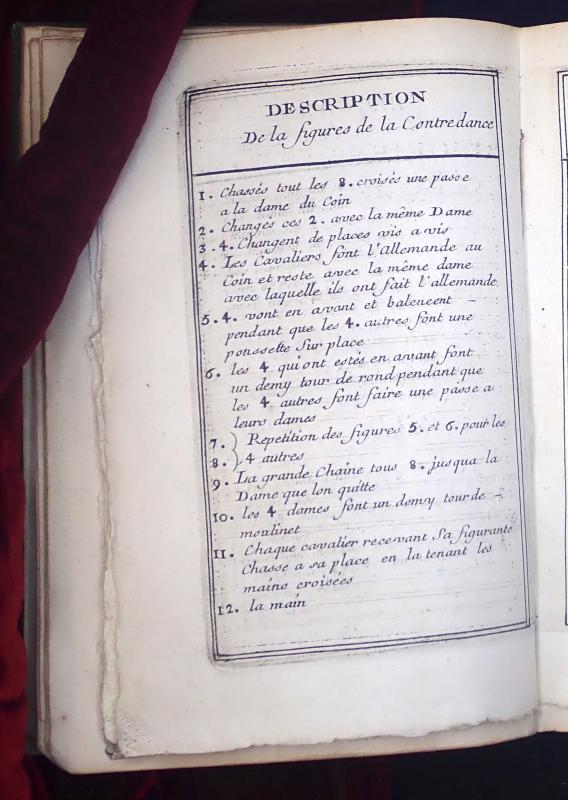 DESCRIPTION
De la figures de la Contredance
1. Chassés tout les 8. croisés une passe
a la dame du Coin
2. Changés ces 2. avec la même Dame
3. 4. Changent de places vis a vis
4. Les Cavaliers font l'Allemande au
Coin et reste avec la même dame
avec laquelle ils ont fait l'allemande
5. 4. vont en avant et balencent
pendant que les 4. autres font une
poussette sur place
6. les 4 qui ont estés en avant font
un demy tour de rond pendant que
les 4 autres font faire une passe a
leurs dames
7. } Repetition des figures 5. et 6. pour les
8. } 4 autres
9. La grande Chaine tous 8. jusqua la
Dame que lon quitte
10. les 4 dames font un demy tour de -
moulinet
11. Chaque cavalier recevant Sa figurante
Chasse a sa place en la tenant les
mains croisées
12. la main